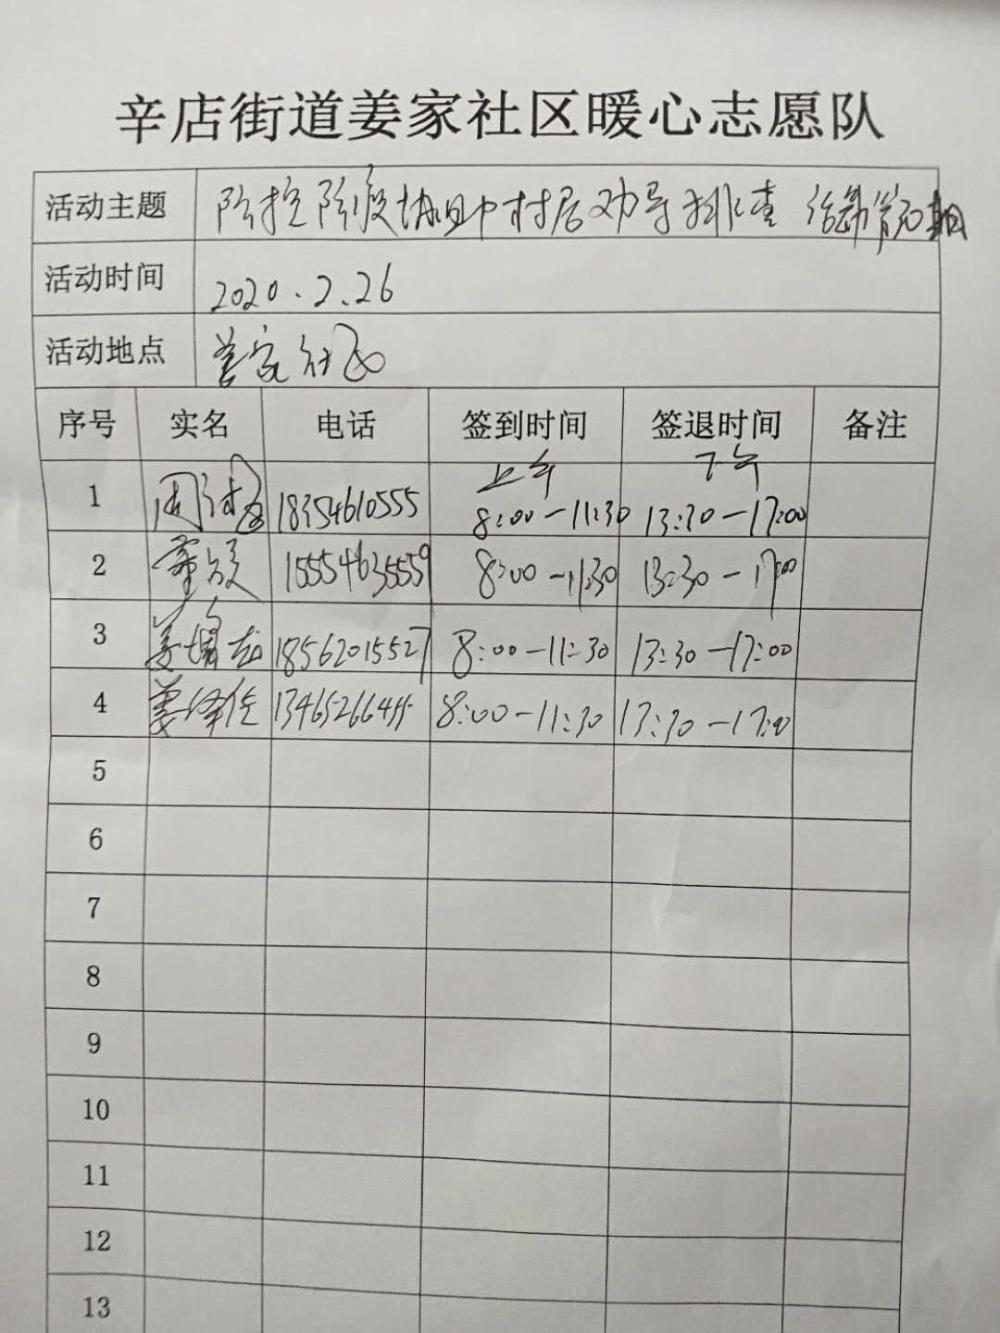 辛店街道姜家社区暖心志愿队
活动主题 防控阶段协助村居劝导排查
活动时间 2020.2.26
活动地点 姜家社区
序号 实名 电话 签到时间 签退时间 备注
上午 下午
1 周 18354610555 8:00-11:30 13:30-17:00
2 15554635559 8:00-11:30 13:30-17:00
3 姜 18562015527 8:00-11:30 13:30-17:00
4 姜 8:00-11:30 13:30-17:00
5
6
7
8
9
10
11
12
13